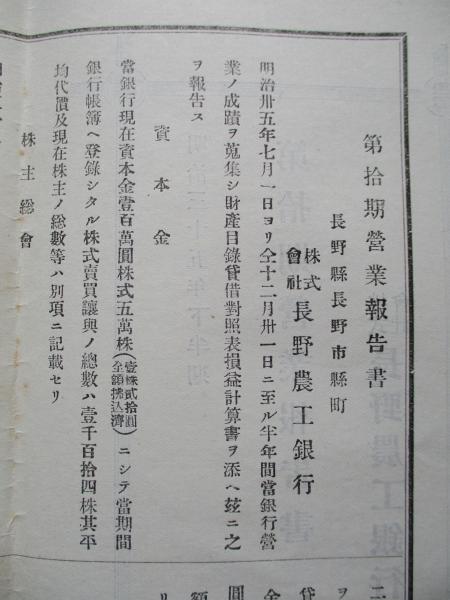 第拾期營業報告書
長野縣長野市縣町
株式會社長野農工銀行
明治卅五年七月一日ヨリ仝十二月卅一日ニ至ル半年間當銀行營
業ノ成蹟ヲ蒐集シ財產目錄貸借對照表損益計算書ヲ添ヘ玆ニ之
ヲ報告ス
資本金
當銀行現在資本金壹百萬圓株式五萬株(壹株貳拾圓全額拂込濟)ニシテ當期間
銀行帳簿ヘ登錄シタル株式賣買讓與ノ總數ハ壹千百拾四株其平
均代價及現在株主ノ總數等ハ別項ニ記載セリ
株主總會